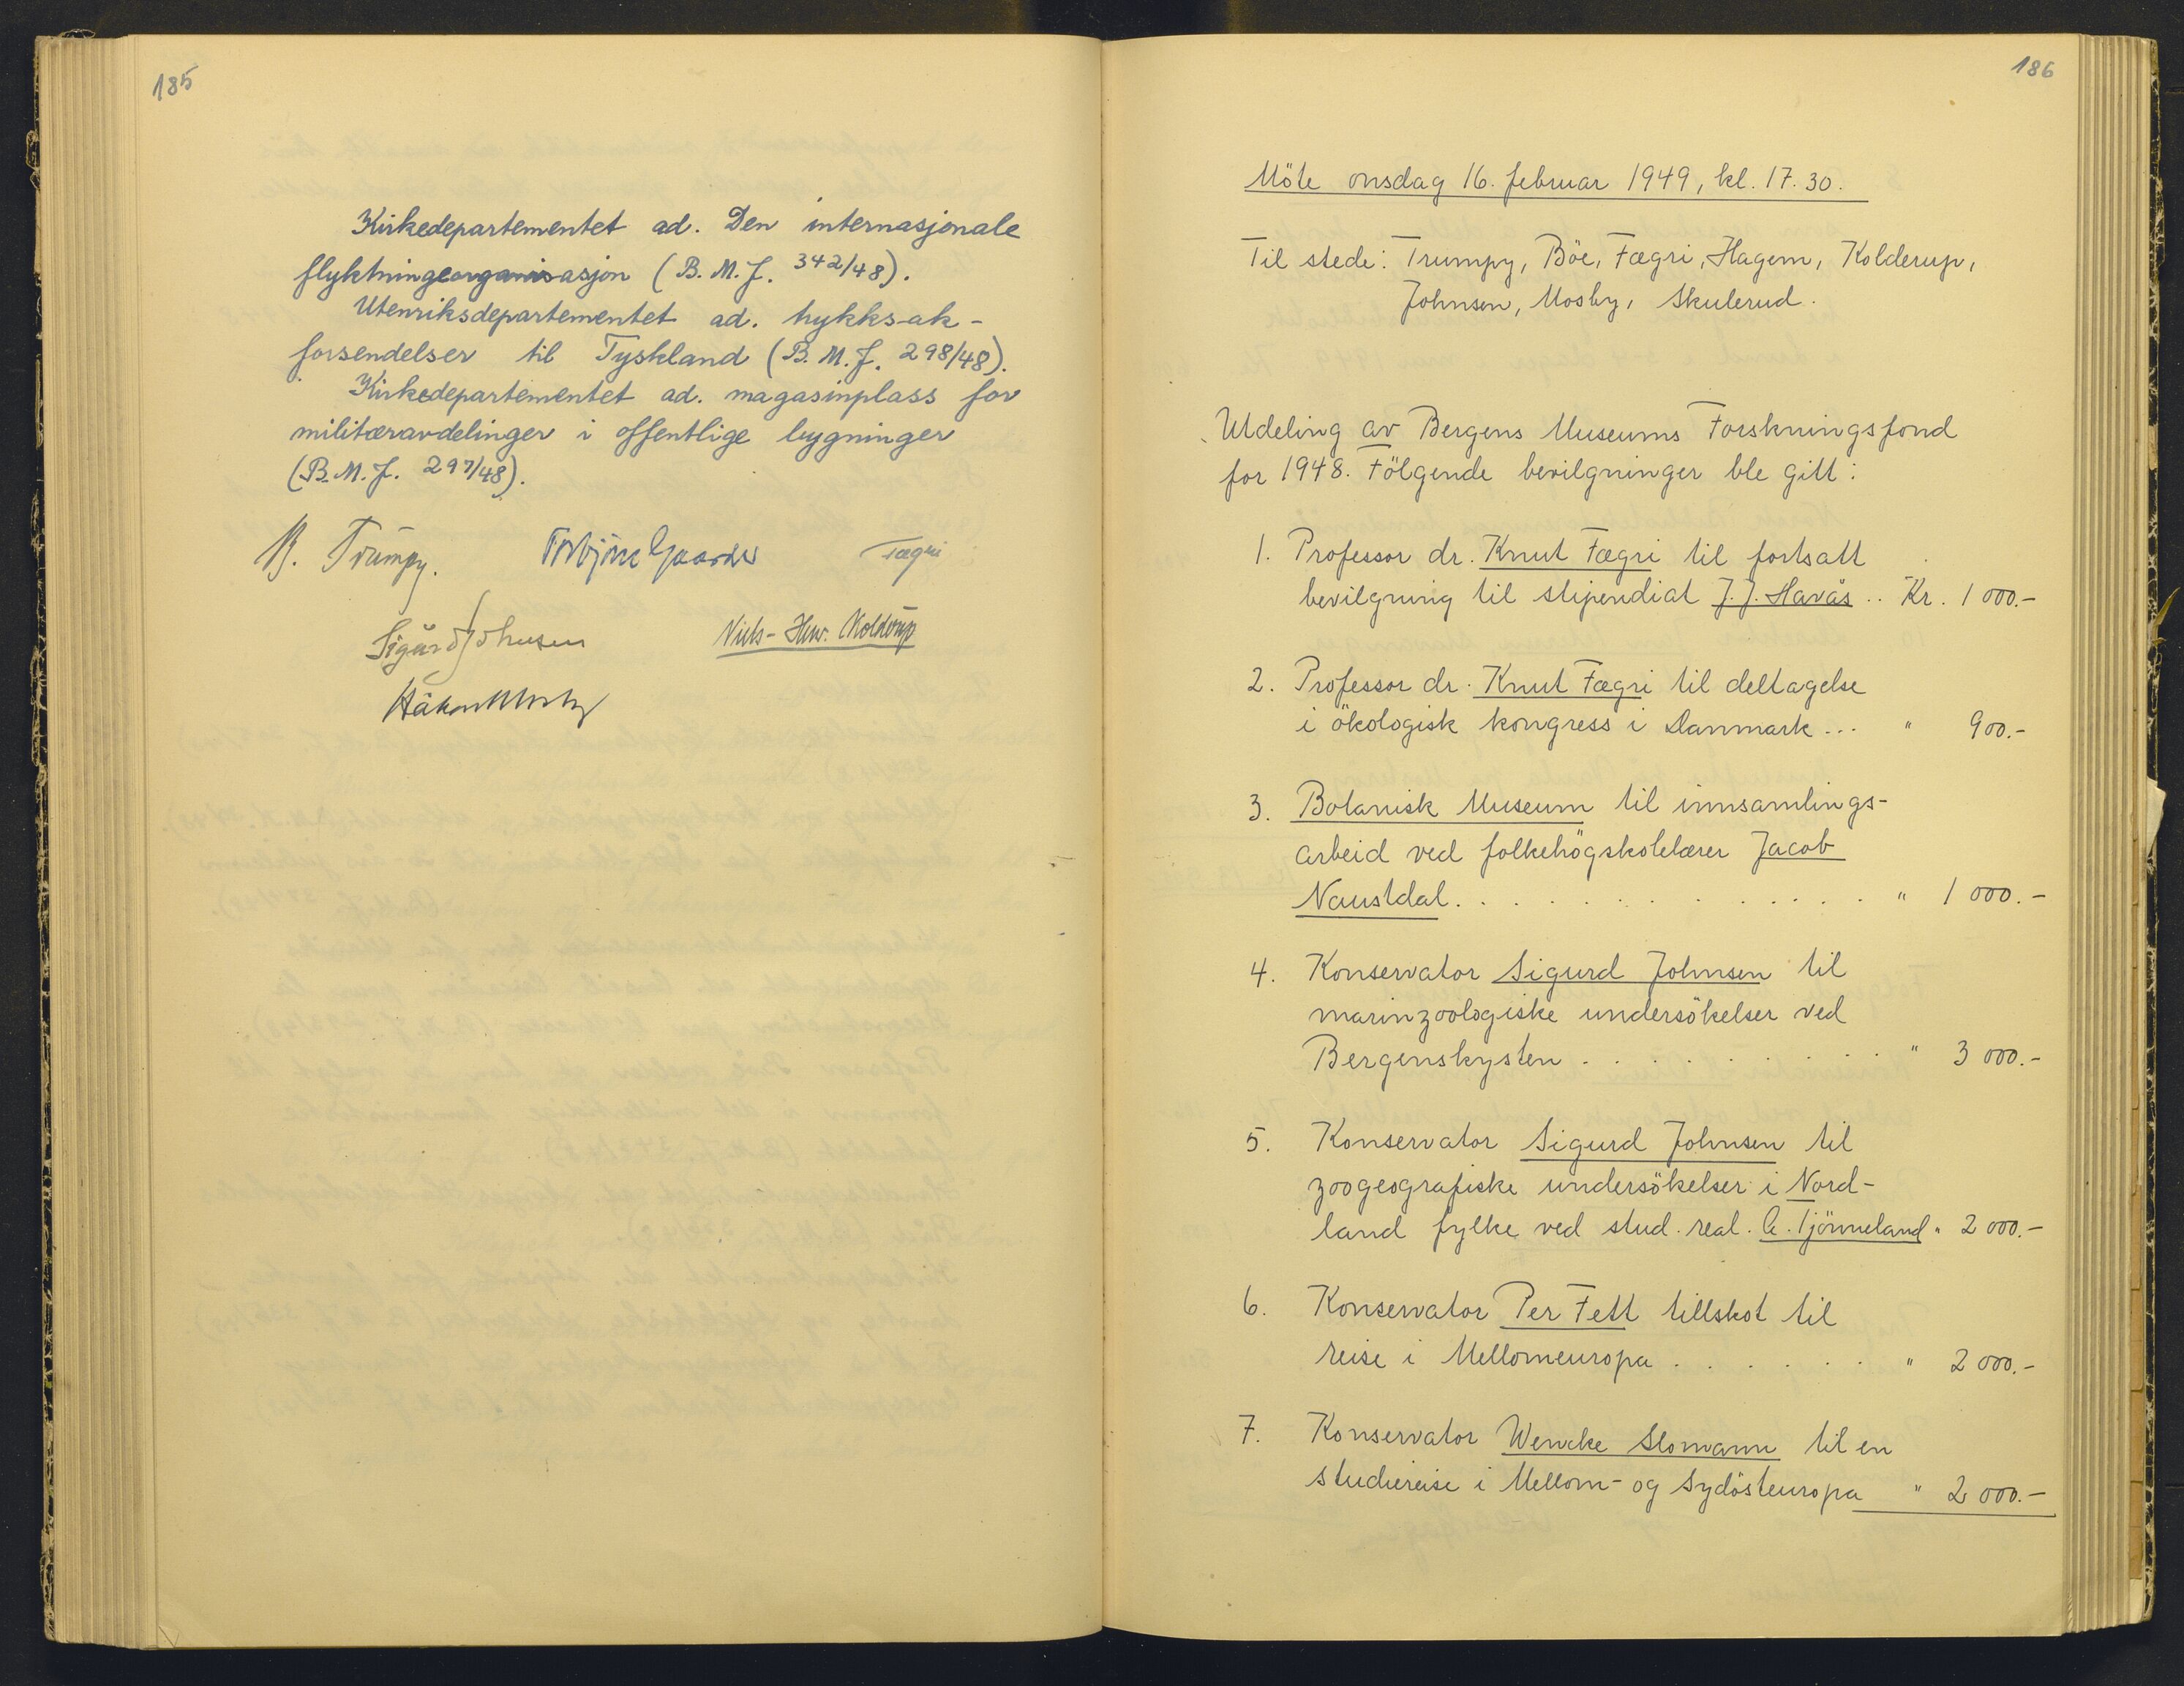 185
Kirkedepartementet ad. Den internasjonale
flyktningeorganisasjon (B. M. J. 342/48).
Utenriksdepartementet ad. trykks-ak-
forsendelser til Tyskland (B. M. J. 298/48).
Kirkedepartementet ad. magasinplass for
militæravdelinger i offentlige bygninger
(B. M. J. 297/48).
B. Trumpy. Torbjörn Gaarder Fægri
Sigurd Johnsen Niels-Henr. Kolderup
Håkon Mosby
186
Möte onsdag 16. februar 1949, kl. 17.30.
Til stede: Trumpy, Böe, Fægri, Hagem, Kolderup,
Johnsen, Mosby, Skulerud.
Utdeling av Bergens Museums Forskningsfond
for 1948. Fölgende bevilgninger ble gitt:
1. Professor dr. Knut Fægri til fortsatt
bevilgning til stipendiat J. J. Havås .. Kr. 1 000.-
2. Professor dr. Knut Fægri til deltagelse
i ökologisk kongress i Danmark ... " 900.-
3. Botanisk Museum til innsamlings-
arbeid ved folkehögskolelærer Jacob
Naustdal. . . . . . . . . . . . . . " 1 000.-
4. Konservator Sigurd Johnsen til
marinzoologiske undersökelser ved
Bergenskysten . . . . . . . . . . " 3 000.-
5. Konservator Sigurd Johnsen til
zoogeografiske undersökelser i Nord-
land fylke ved stud. real. A. Tjönneland " 2 000.-
6. Konservator Per Fett tillskot til
reise i Mellomeuropa . . . . . . . " 2 000.-
7. Konservator Wencke Slomann til en
studiereise i Mellom- og Sydösteuropa " 2 000.-